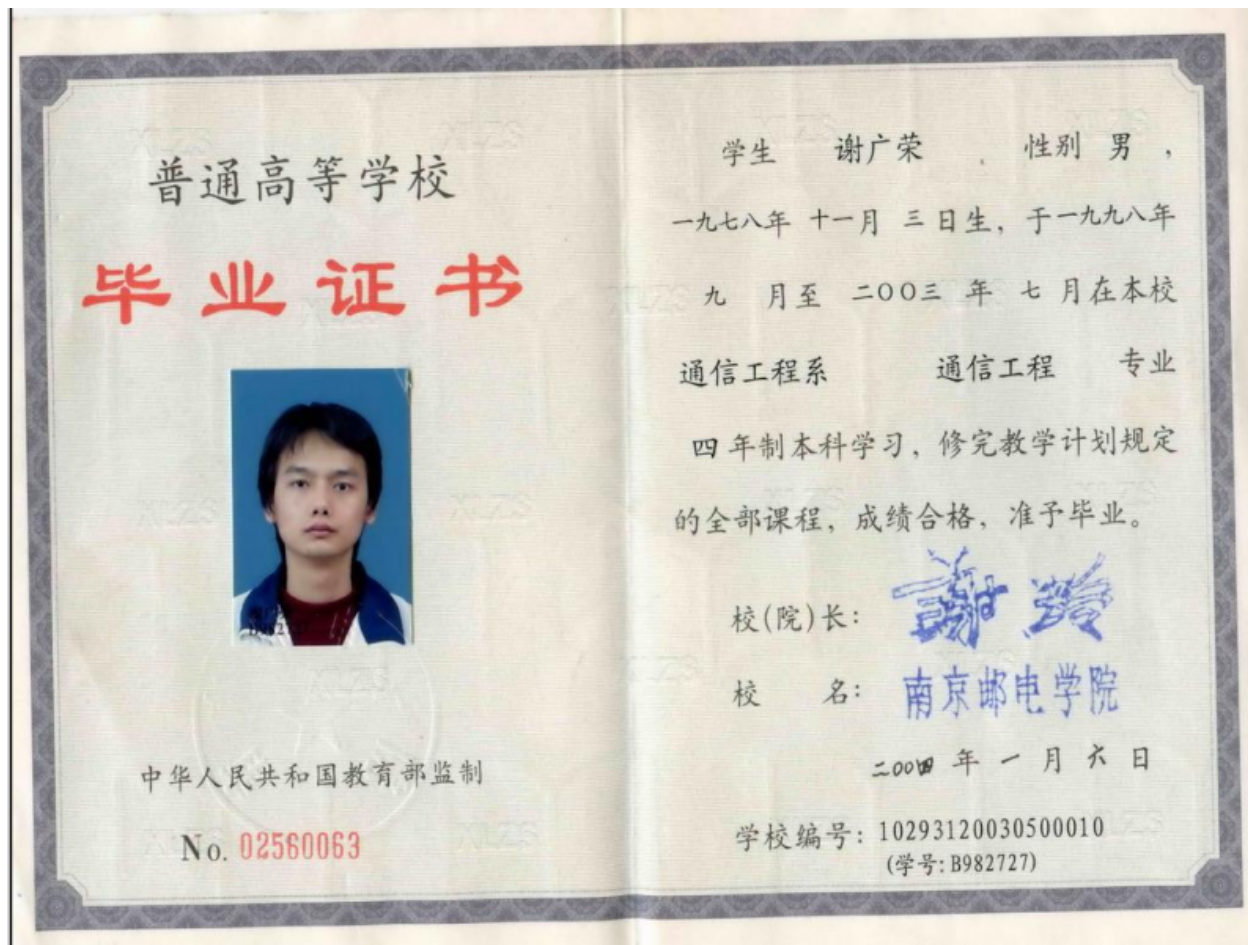 普通高等学校
毕业证书
中华人民共和国教育部监制
No. 02560063
学生 谢广荣 , 性别 男 ,
一九七八年 十一月 三日生, 于一九九八年
九 月至 二OO三 年 七 月在本校
通信工程系 通信工程 专业
四年制本科学习, 修完教学计划规定
的全部课程, 成绩合格, 准予毕业。
校(院)长:
校 名: 南京邮电学院
二00四 年 一 月 六 日
学校编号: 10293120030500010
(学号: B982727)